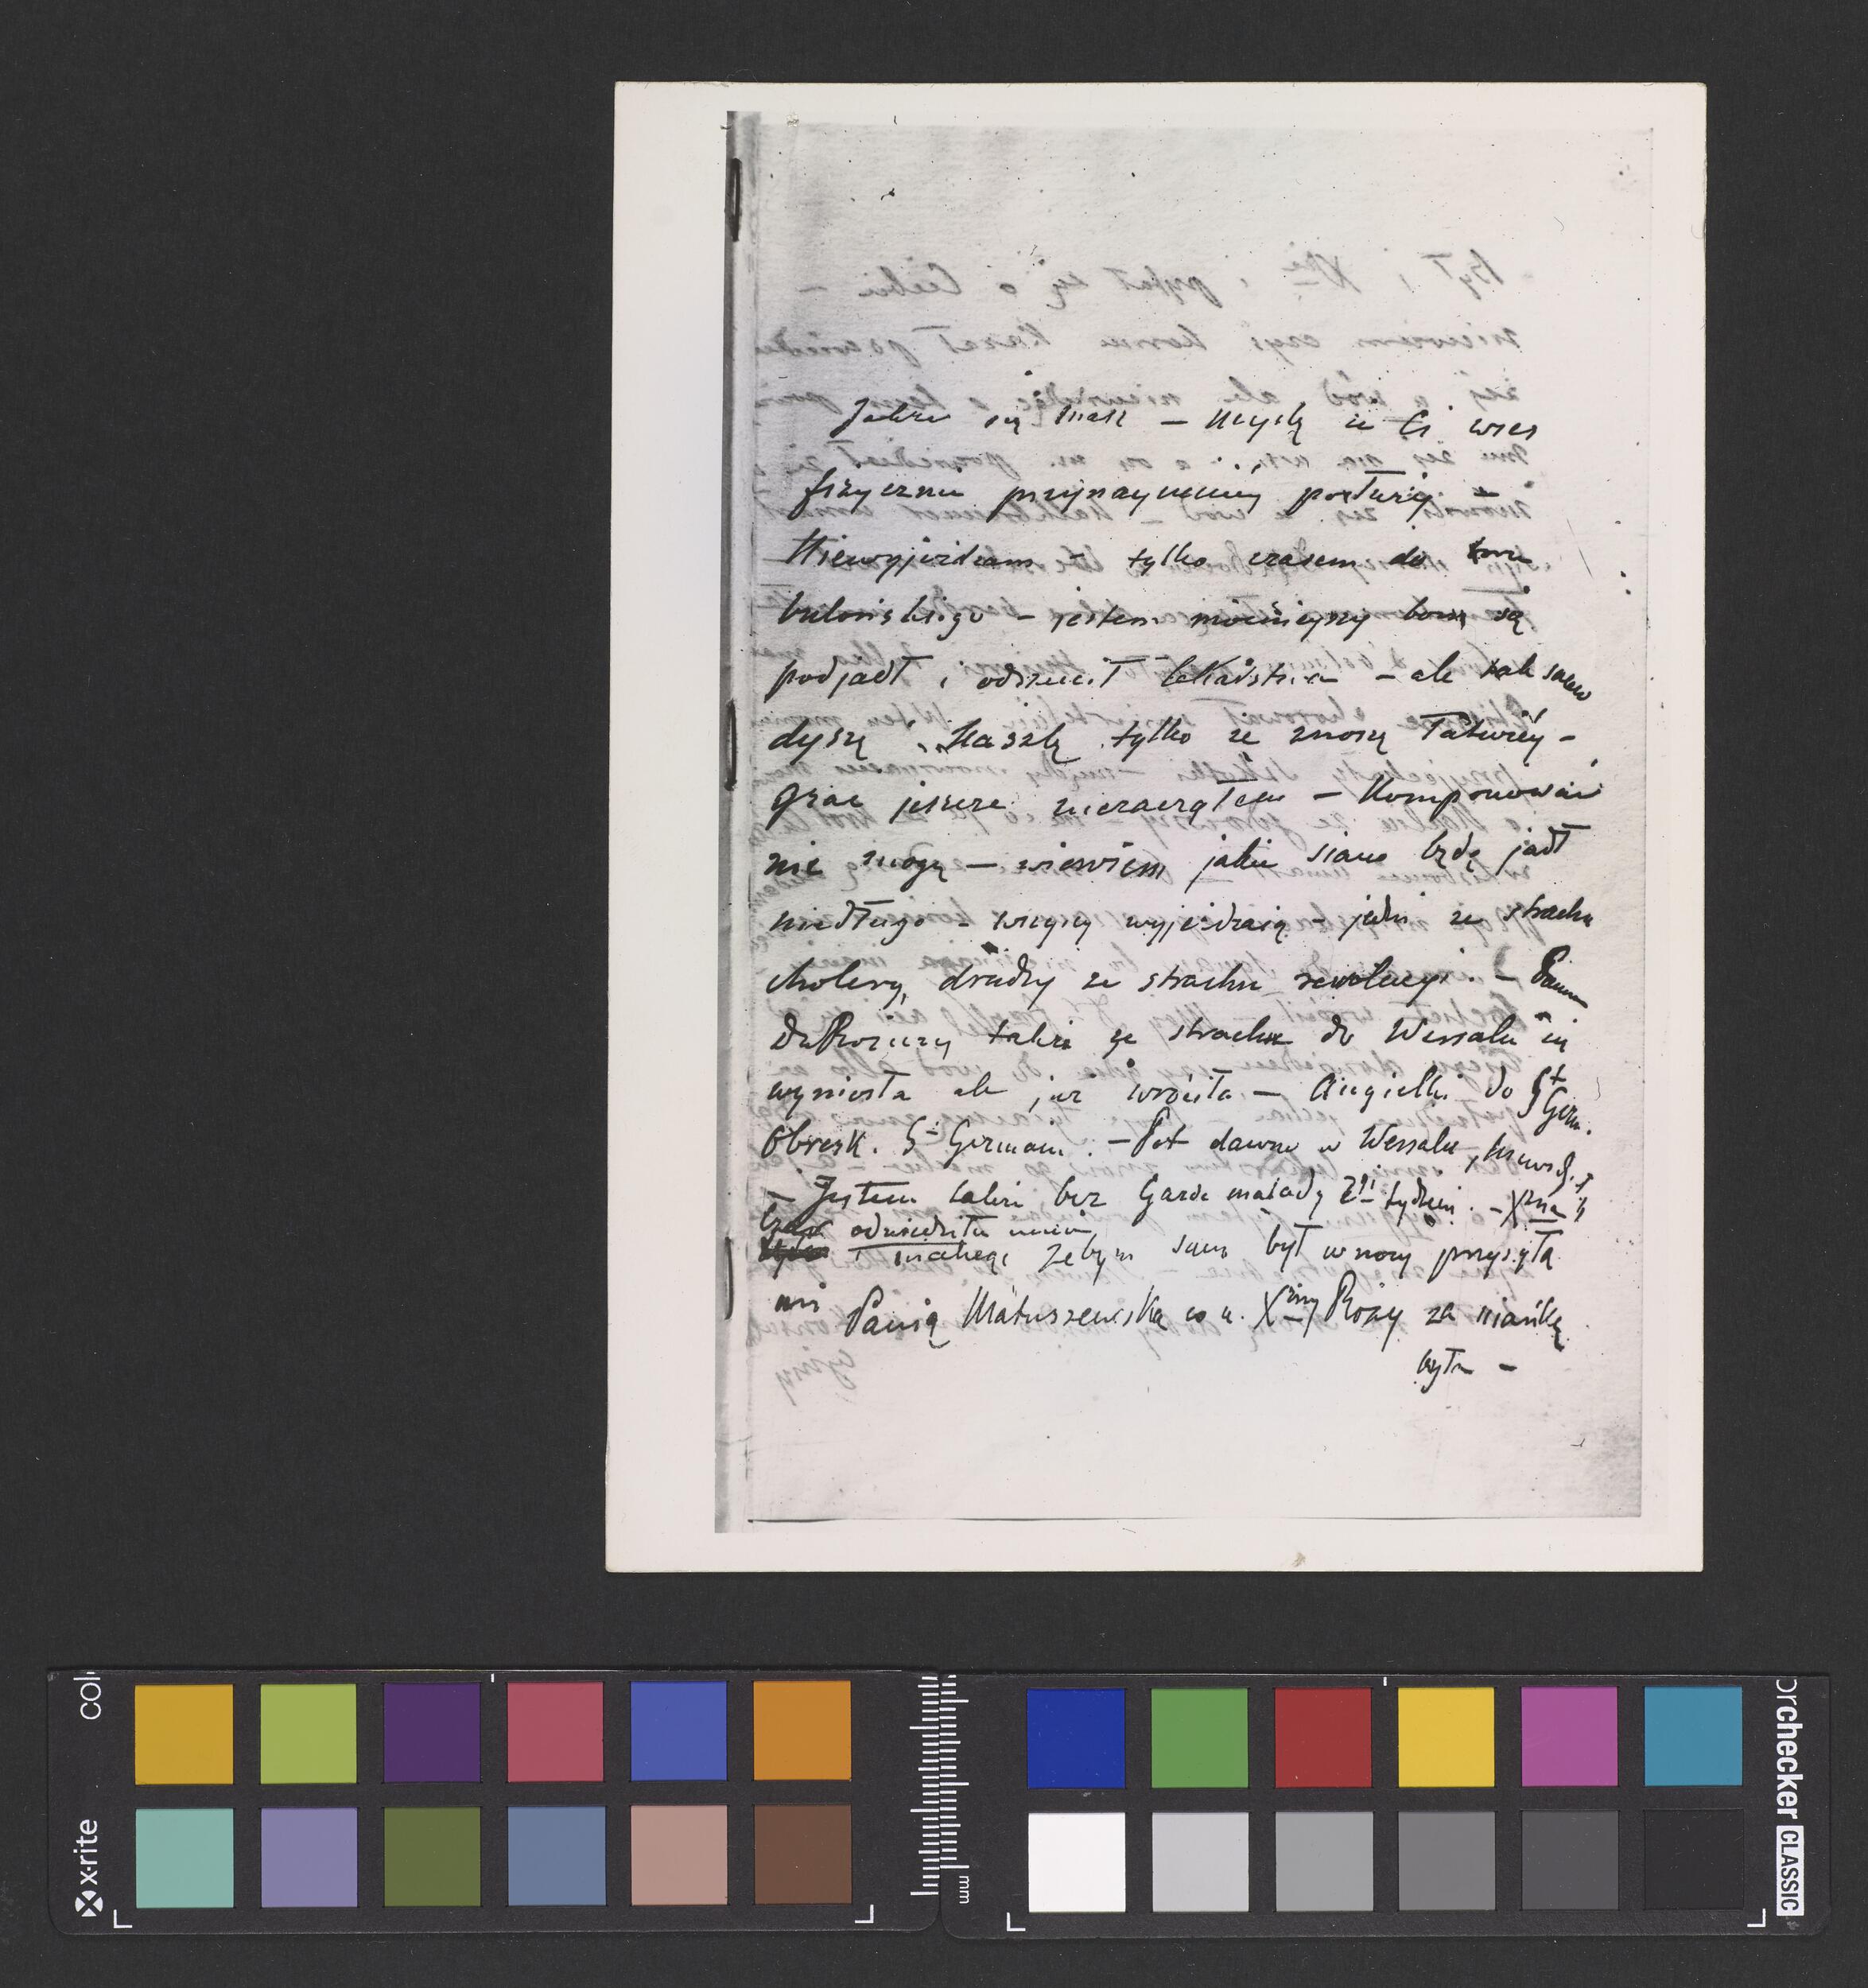 Jakże się masz – Myślę że Ci wieś
fizycznie przynaymniéy posłuży –
Niewyjeżdżam – tylko czasem do
bulońskiego – jestem mocniejszy bom się
podjadł i odrzucił lekarstwa – ale tak samo
dyszę i kaszlę tylko że znoszę łatwiéy –
Grać jeszcze niezacząłem – Komponować
nie mogę – niewiem jakie siano będę jadł
niedługo – wszyscy wyjeżdzają – jedni ze strachu
cholery, drudzy ze strachu rewolucyi. – Panna
de Rozieres także ze strachu do Wersalu się
wyniosła ale już wróciła – Angielki do St Germ.
Obresk. St Germain. – Pot dawno w Wersalu,
– Jestem także bez Garde malady 2gi tydzień. – Xżna
Czar odwiedziła mnie
i niechcąc żebym sam był w nocy przysyła
mi Panią Matuszewską co u Xżny Róży za niańkę
była –
col
x-rite
mm
orchecker CLASSIC